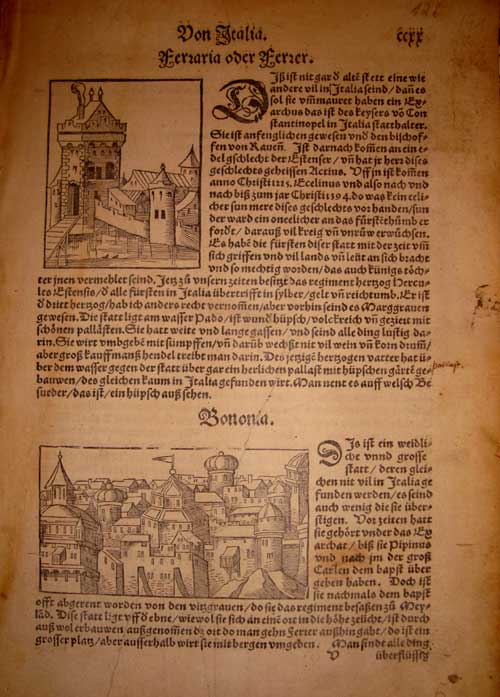 Von Italia. ccxx
Ferraria oder Ferrer.
Diß ist nit gar d̕ alte stett eine wie
andere vil in Italia seind / dañ es
sol sie vm̃mauret haben ein Ex-
archus das ist des keysers võ Con
stantinopel in Italia statthalter.
Sie ist anfenglichen gewesen vnd den bischof-
fen von Rauen̄. Ist darnach kom̃en an ein e-
del gschlecht der Estenser / vñ hat jr herz dises
geschlechts geheissen Actius. Vff jn ist kom̃en
anno Christi 1215. Ecelinus vnd also nach vnd
nach biß zum jar Christi 1394. do was kein eeli-
cher sun mere dises geschlechts vorhanden / sun
der ward ein oneelicher an das fürstēthumb er
fordt / darauß vil krieg vñ vnrůw erwůchsen.
Es habē die fürsten diser statt mit der zeit vm̃
sich griffen vnd vil lands vñ leüt an sich bracht
vnd so mechtig worden / das auch künigs töch-
ter jnen vermehlet seind. Jetz zů vnsern zeiten besitzt das regiment hertzog Hercu-
les Estensis / d̕ alle fürsten in Italia übertrifft in sylber / gelt vñ reichtumb. Er ist
d̕ dritt hertzog / hab ich anders recht vernom̃en / aber vorhin seind es Marggrauen
gewesen. Die statt ligt am wasser Pado / ist rund hüpsch / volckreich vñ geziert mit
schönen pallästen. Sie hatt weite vnd lange gassen / vnd seind alle ding lustig da-
rin. Sie wirt vmbgebē mit sümpffen / vñ darüb wechßt nit vil wein vñ korn drum̃ /
aber groß kauffmanß hendel treibt man darin. Des jetzigē hertzogen vatter hat ü-
ber dem wasser gegen der statt über gar ein herlichen pallast mit hüpschen gärtē ge-
bauwen / des gleichen kaum in Italia gefunden wirt. Man nent es auff welsch Be
sueder / das ist / ein hüpsch auß sehen.
Bononia.
Dis ist ein weidli-
che vnnd grosse
statt / deren glei-
chen nit vil in Italia ge
funden werden / es seind
auch wenig die sie über-
stigen. Vor zeiten hatt
sie gehört vnder das Ex
archat / biß sie Pipinus
vnd nach jm der groß
Carlen dem bapst über
geben haben. Doch ist
sie nachmals dem bapst
offt abgerent worden von den vitzgrauen / do sie das regiment besaßen zů Mey-
land. Dise statt ligt vff d̕ ebne / wiewol sie sich an einē ort in die höhe zeücht / ist durch
auß wol erbauwen außgenom̃en dz ort do man gehn Ferrer außhin gaht / do ist ein
grosser platz / aber ausserhalb wirt sie mit bergen vmgeben. Man findt alle ding
V überflüssig